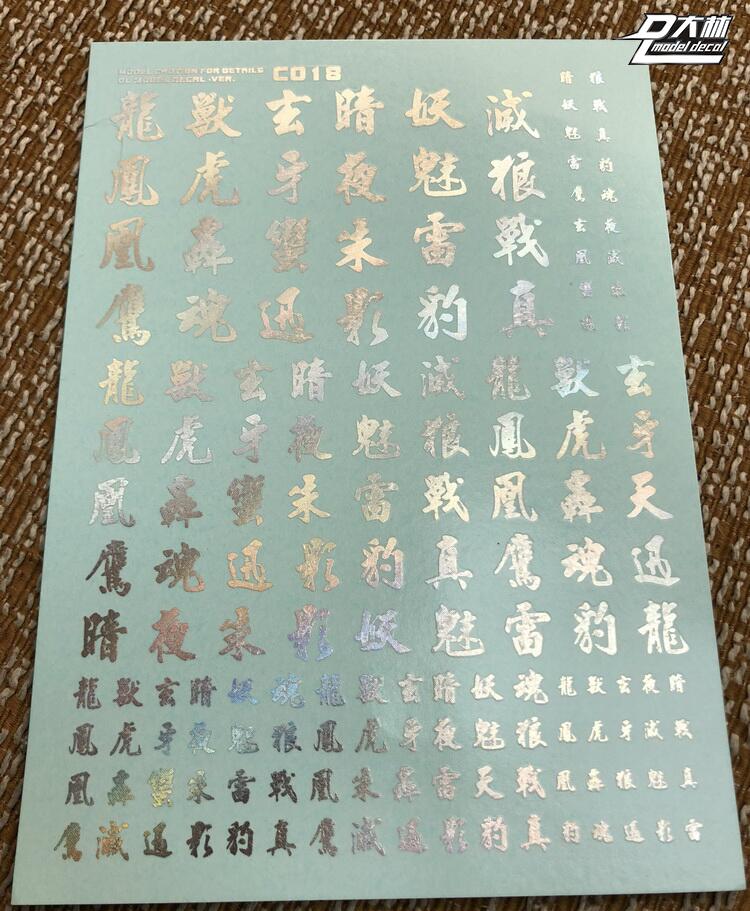 大林
model decal
MODEL CAUTION FOR DETAILS
DL MODEL DECAL .VER.
C018
龍 獸 玄 暗 妖 滅
鳳 虎 牙 夜 魅 狼
凰 轟 蠻 朱 雷 戰
鷹 魂 迅 影 豹 真
暗 狼
妖 戰
魅 真
雷 豹
鷹 魂
玄 夜
凰 滅
龍 獸 玄 暗 妖 滅 龍 獸 玄
鳳 虎 牙 夜 魅 狼 鳳 虎 牙
凰 轟 蠻 朱 雷 戰 凰 轟 天
鷹 魂 迅 影 豹 真 鷹 魂 迅
暗 夜 朱 影 妖 魅 雷 豹 龍
龍 獸 玄 暗 妖 魂 龍 獸 玄 暗 妖 魂 龍 獸 玄 夜 暗
鳳 虎 牙 夜 魅 狼 鳳 虎 牙 夜 魅 狼 鳳 虎 牙 滅 戰
凰 轟 蠻 朱 雷 戰 凰 朱 轟 雷 天 戰 凰 轟 狼 魅 真
鷹 滅 迅 影 豹 真 鷹 滅 迅 影 豹 真 豹 魂 迅 影 雷